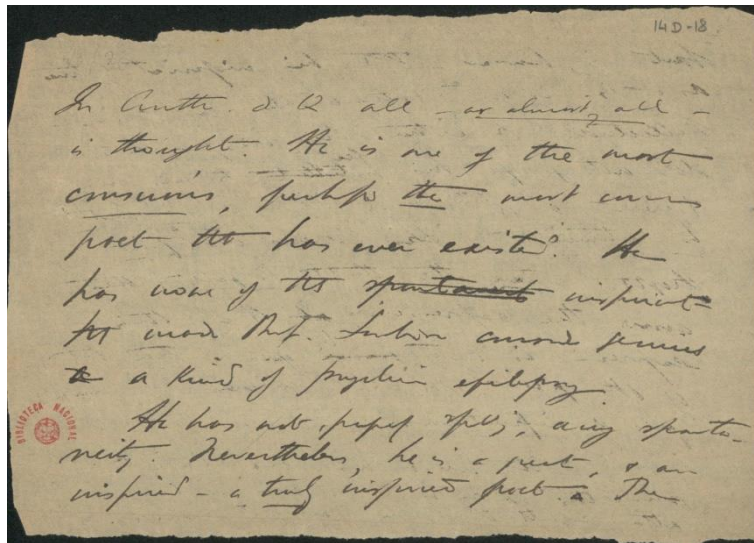 14D-18
In Anth. d Q all – or almost all –
is thought. He is one of the most
conscious, perhaps the most cons
poet tht has ever existed. He
has none of tht inspirat-
tht made Prof. consider genius
a kind of psychic epilepsy
He has not, any sponta-
neity. Nevertheless, he is a poet, & an
inspired – a truly inspired poet. The
BIBLIOTECA NACIONAL